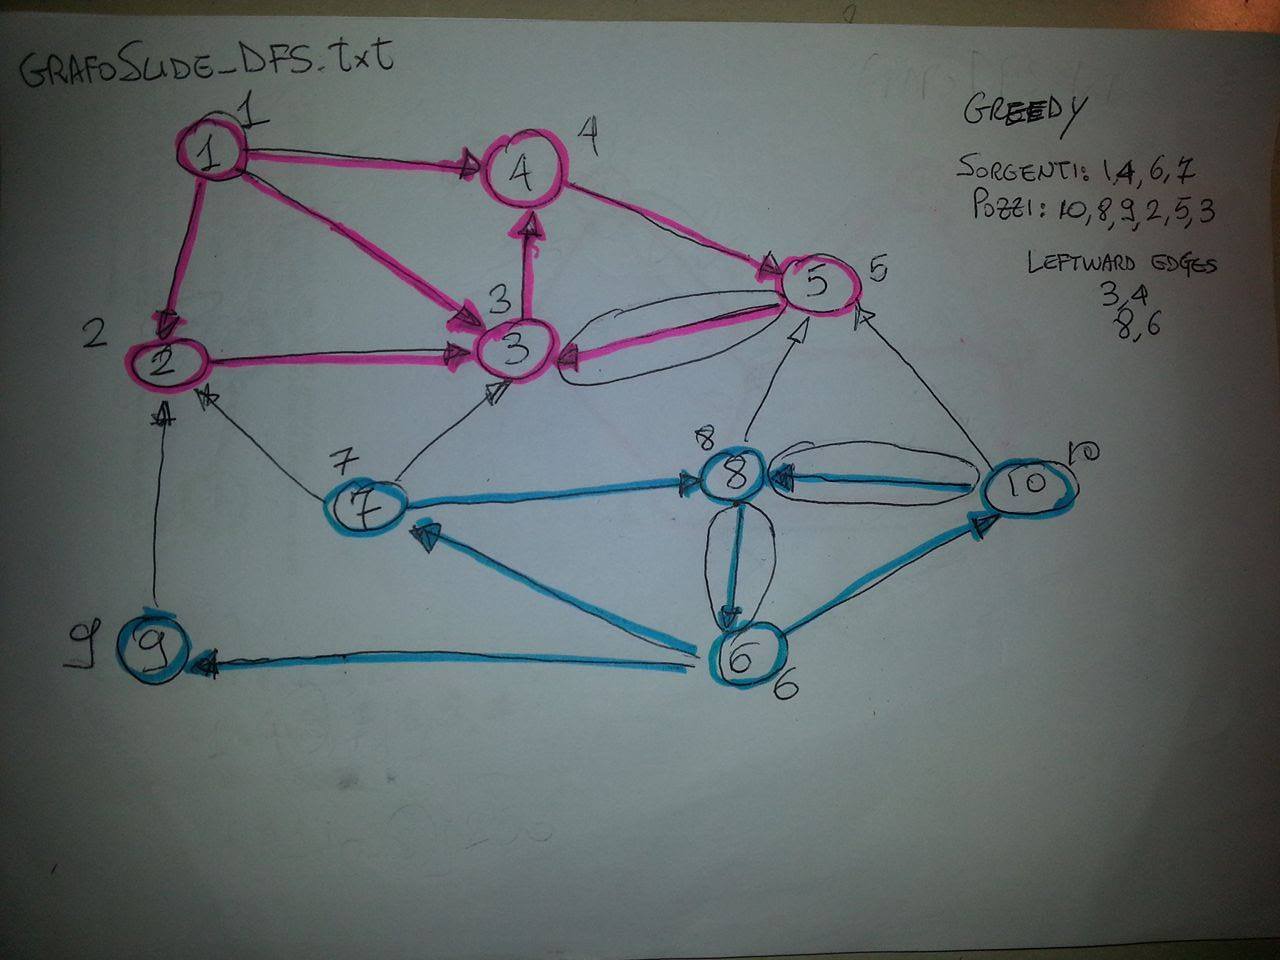 GRAFOSLIDE_DFS.txt
GREEDY
SORGENTI: 1,4,6,7
POZZI: 10,8,9,2,5,3
LEFTWARD EDGES
3,4
8,6
1
1
4
4
5
5
3
3
2
2
7
7
8
8
10
10
9
9
6
6